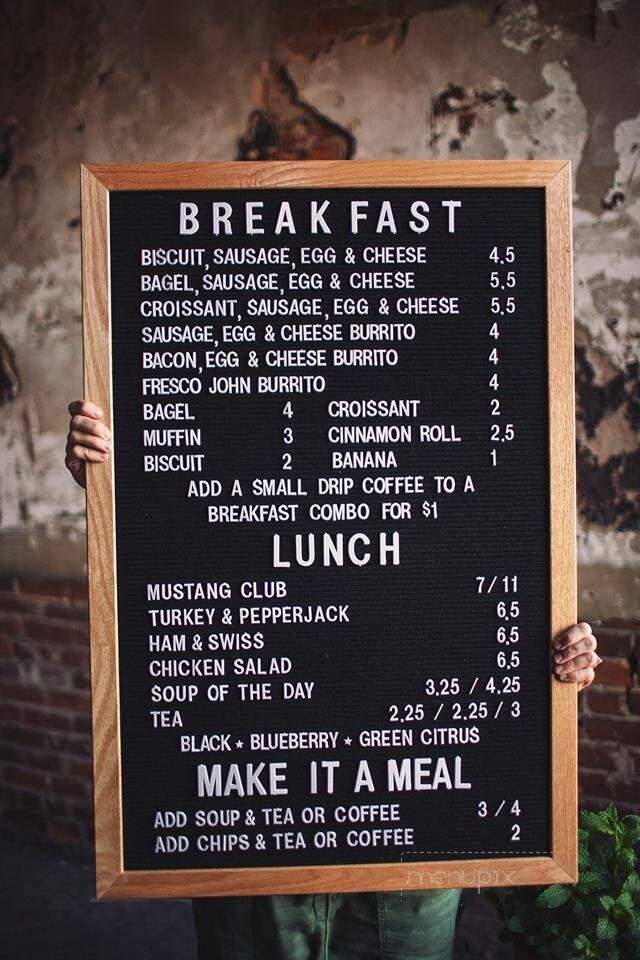 BREAKFAST
BISCUIT, SAUSAGE, EGG & CHEESE 4.5
BAGEL, SAUSAGE, EGG & CHEESE 5.5
CROISSANT, SAUSAGE, EGG & CHEESE 5.5
SAUSAGE, EGG & CHEESE BURRITO 4
BACON, EGG & CHEESE BURRITO 4
FRESCO JOHN BURRITO 4
BAGEL 4 CROISSANT 2
MUFFIN 3 CINNAMON ROLL 2.5
BISCUIT 2 BANANA 1
ADD A SMALL DRIP COFFEE TO A
BREAKFAST COMBO FOR $1
LUNCH
MUSTANG CLUB 7/11
TURKEY & PEPPERJACK 6.5
HAM & SWISS 6.5
CHICKEN SALAD 6.5
SOUP OF THE DAY 3.25 / 4.25
TEA 2.25 / 2.25 / 3
BLACK ★ BLUEBERRY ★ GREEN CITRUS
MAKE IT A MEAL
ADD SOUP & TEA OR COFFEE 3 / 4
ADD CHIPS & TEA OR COFFEE 2
menupix